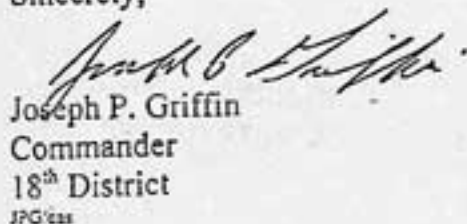 Sincerely,
Joseph P. Griffin
Joseph P. Griffin
Commander
18th District